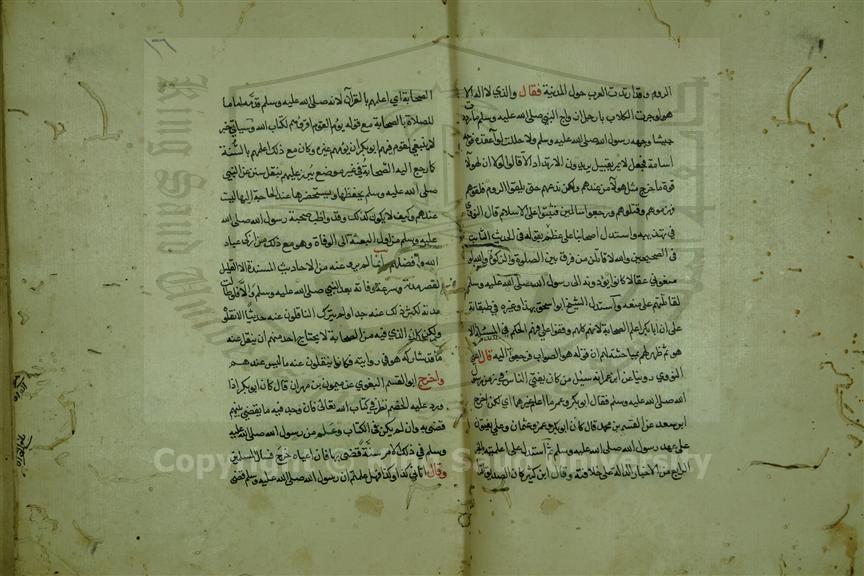 الروم وقد ارتدت العرب حول المدينة فقال والذي لا اله الا
هو لو جرت الكلاب بارجل ازواج النبي صلى الله عليه وسلم ما رددت
جيشا وجهه رسول الله صلى الله عليه وسلم ولا حللت لواء عقده فوجه
اسامة فجعل لا يمر بقبيل يريدون الارتداد الا قالوا لولا ان لهولاء
قوة ما خرج مثل هولاء من عندهم ولكن ندعهم حتى يلقوا الروم فلقوهم
وهزموهم وقتلوهم ورجعوا سالمين فثبتوا على الاسلام قال النووي
في تهذيبه واستدل اصحابنا على عظم علمه بقوله في الحديث الثابت
في الصحيحين والله لاقاتلن من فرق بين الصلوة والزكوة والله لو
منعوني عقالا كانوا يؤدونه الى رسول الله صلى الله عليه وسلم
لقاتلتهم على منعه واستدل الشيخ ابو اسحق بهذا وغيره في طبقاته
على ان ابا بكر اعلم الصحابة لانهم كلهم وقفوا على فهم الحكم في المسئلة الا
هو ثم ظهر لهم بمباحثته لهم ان قوله هو الصواب فرجعوا اليه قال
النووي روينا عن ابن عمر انه سئل من كان يفتي الناس في زمن رسول
الله صلى الله عليه وسلم فقال ابو بكر وعمر ما اعلم غيرهما اي لكن اخرج
ابن سعد عن القسم بن محمد قال كان ابو بكر وعمر وعثمان وعلي يفتون
على عهد رسول الله صلى الله عليه وسلم ثم استدل على اعلميته
من الاخبار الدالة على خلافته وقال ابن كثير كان الصديق اقرأ
١٦
الصحابة اي اعلمهم بالقرآن لانه صلى الله عليه وسلم قدمه اماما
للصلاة بالصحابة مع قوله يؤم القوم اقرؤهم لكتاب الله وسياتي خبر
لا ينبغي لقوم فيهم ابو بكر ان يؤمهم غيره وكان مع ذلك اعلمهم بالسنة
كما رجع اليه الصحابة في غير موضع يبرز عليهم بنقل سنن عن النبي
صلى الله عليه وسلم يحفظها ويستحضرها عند الحاجة اليها ليست
عندهم وكيف لا يكون كذلك وقد واظب صحبة رسول الله صلى الله
عليه وسلم من اول البعثة الى الوفاة وهو مع ذلك من ازكى عباد
الله وافضلهم وانما لم يرو عنه من الاحاديث المسندة الا القليل
لقصر مدته وسرعة وفاته بعد النبي صلى الله عليه وسلم والا فلو طالت
مدته لكثر ذلك عنه جدا ولم يترك الناقلون عنه حديثا الا نقلوه
ولكن كان الذي فيه من الصحابة لا يحتاج احد منهم ان ينقل عنه
ما قد شاركه هو في روايته فكانوا ينقلون عنه ما ليس عندهم
واخرج ابو القسم البغوي عن ميمون بن مهران قال كان ابو بكر اذا
ورد عليه الخصم نظر في كتاب الله تعالى فان وجد فيه ما يقضي بينهم
قضى به وان لم يكن في الكتاب وعلم من رسول الله صلى الله عليه
وسلم في ذلك الامر سنة قضى بها فان اعياه خرج فسال المسلمين
وقال اتاني كذا وكذا فهل علمتم ان رسول الله صلى الله عليه وسلم قضى
King Saud University
Copyright © King Saud University